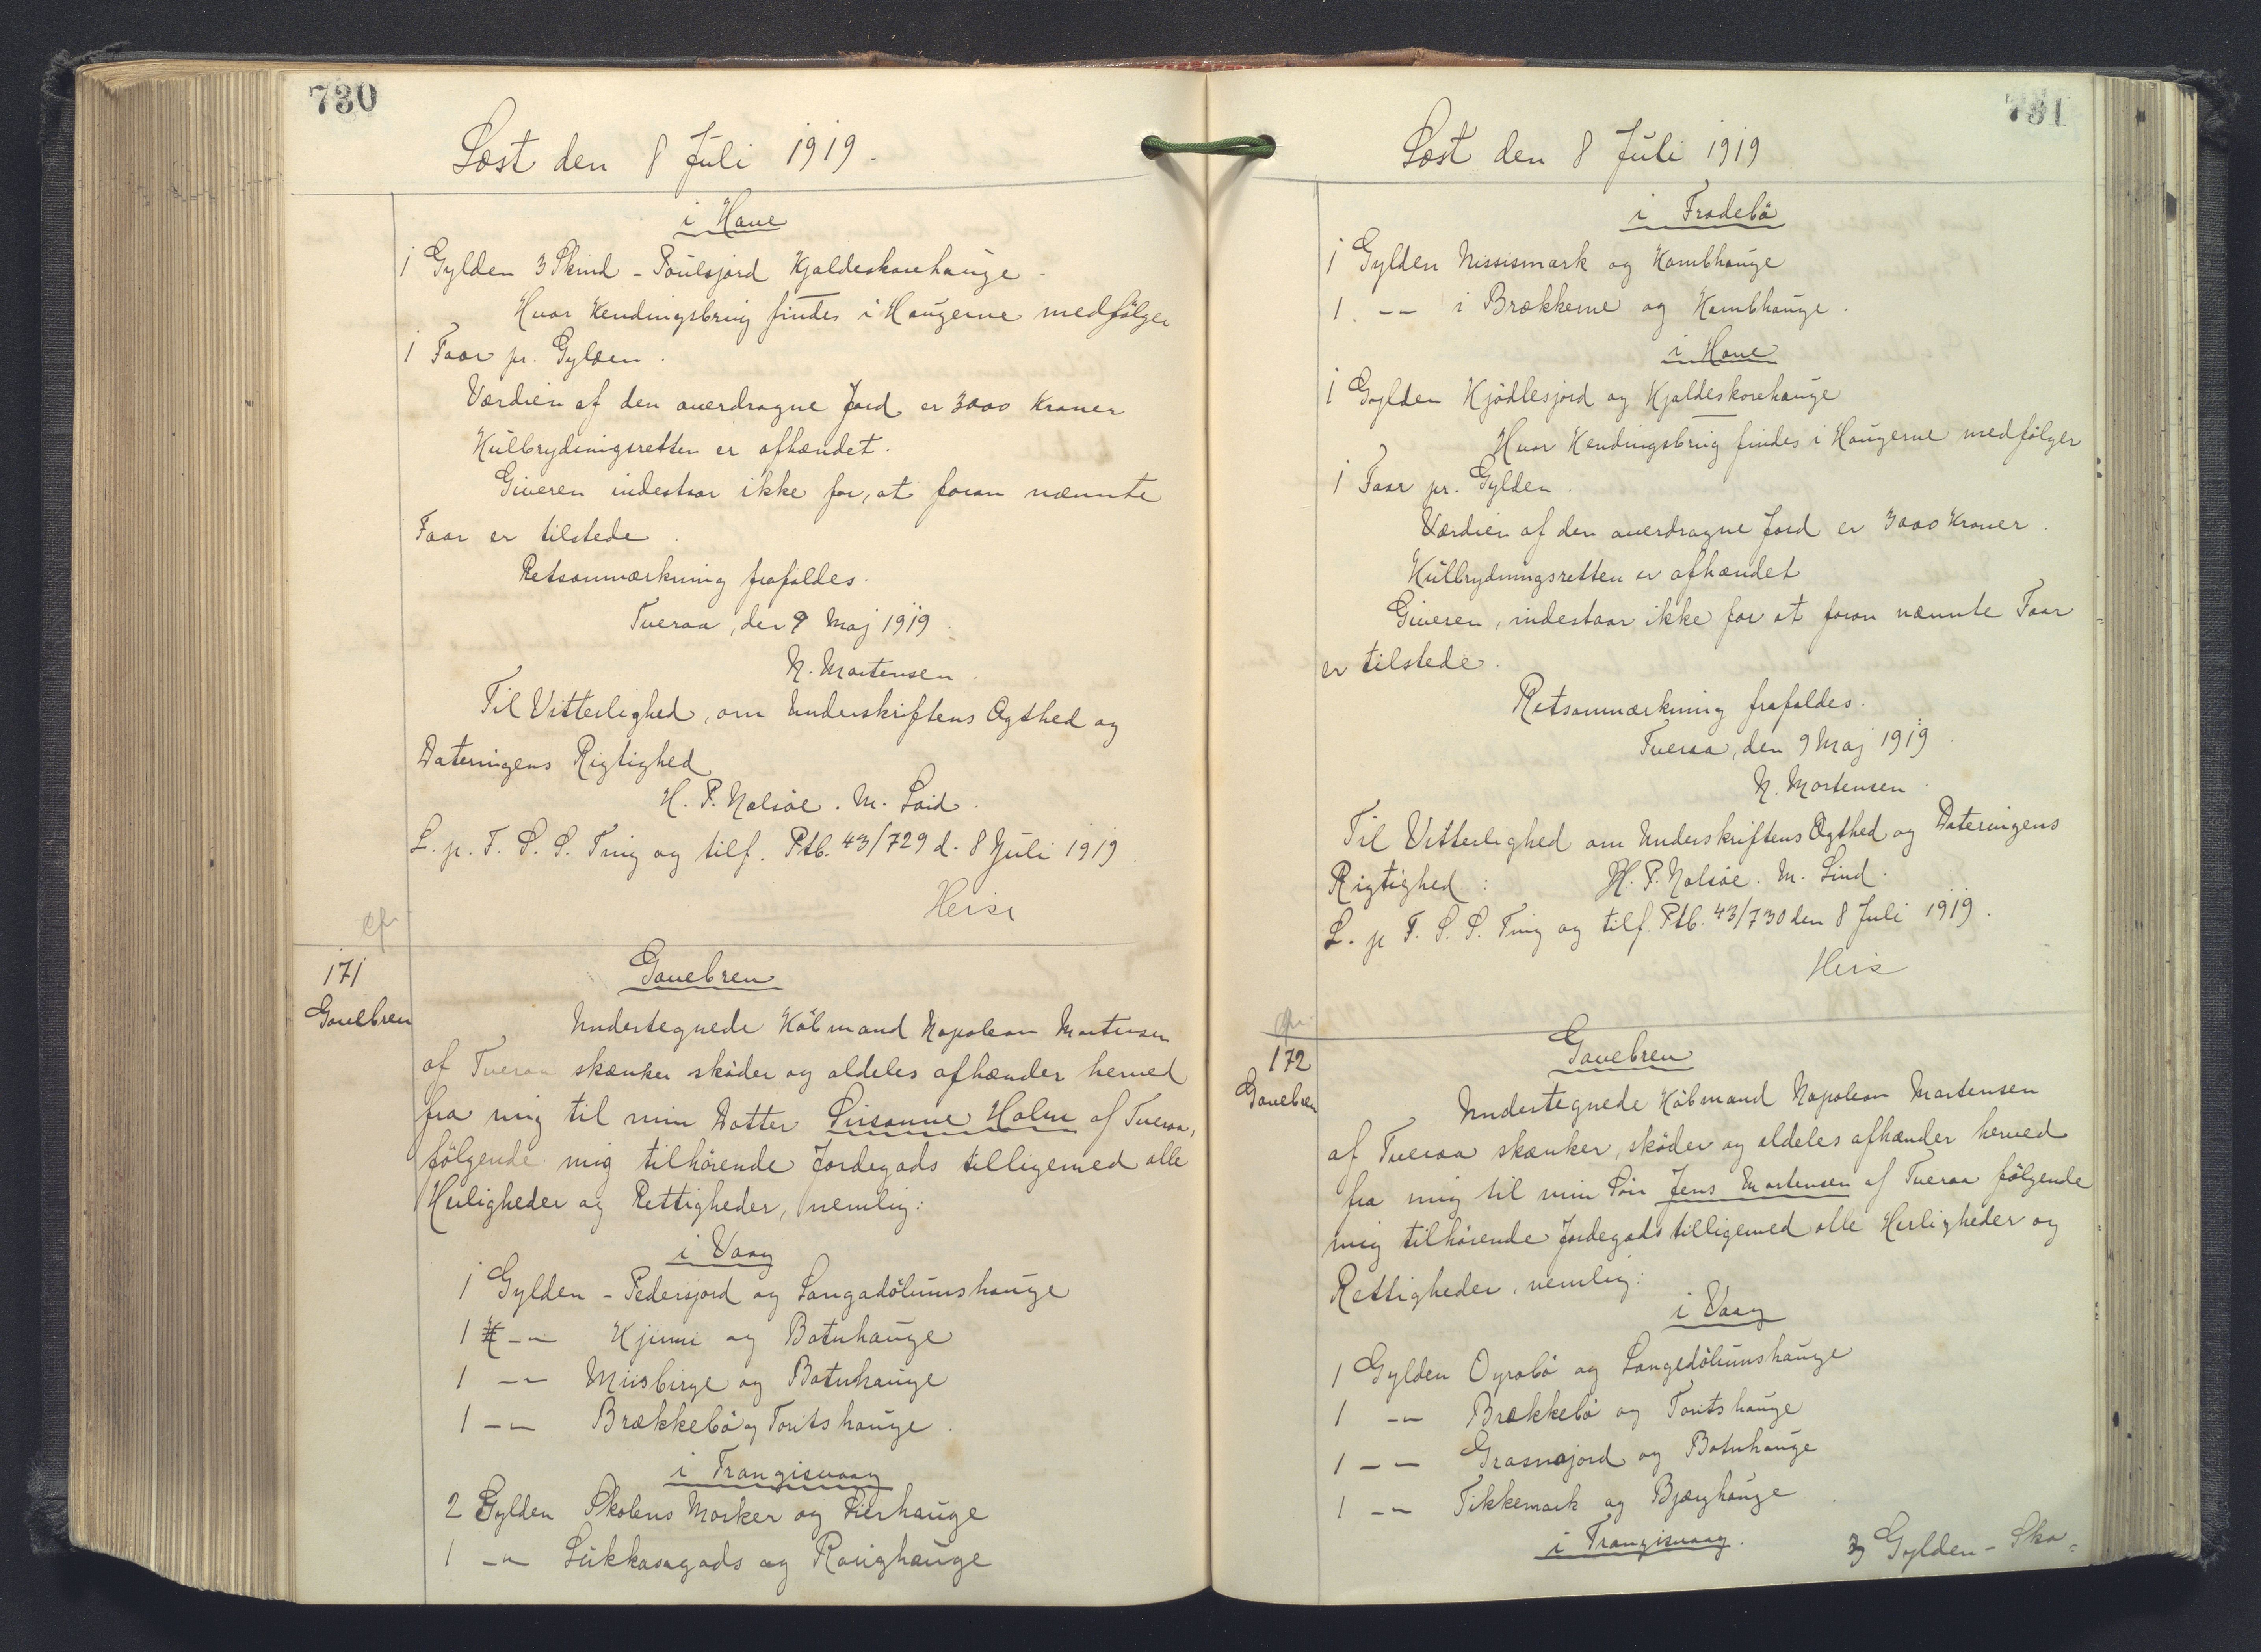 730
Læst den 8 Juli 1919.
i Hove
1 Gylden 3 Skind - Poulsjord Kjaldeskorehauge.
Hvor Kendingsbrug findes i Haugerne medfølger
1 Faar pr. Gylden.
Værdien af den overdragne Jord er 3000 Kroner
Kulbrydningsretten er afhændet.
Giveren indestaar ikke for, at foran nævnte
Faar er tilstede.
Retsanmærkning frafaldes.
Tveraa, den 9 Maj 1919.
N. Mortensen.
Til Vitterlighed, om Underskriftens Ægthed og
Dateringens Rigtighed
H. P. Nolsöe. M. Lind.
L. p. F. S. S. Ting og tilf. Ptb. 43/729 d. 8 Juli 1919
Heise
171
Gavebrev
Gavebrev
Undertegnede Købmand Napoleon Mortensen
af Tveraa skænker skøder og aldeles afhænder herved
fra mig til min Datter Susanne Holm af Tveraa,
følgende mig tilhørende Jordegods tilligemed alle
Herligheder og Rettigheder, nemlig:
i Vaag
1 Gylden - Pedersjord og Langadölumshauge
1 -"- Kjinni og Botnhauge
1 -"- Miisbirge og Botnhauge
1 -"- Brækkebö og Toritshauge.
i Trangisvaag
2 Gylden Skolens Marker og Lierhauge
1 -"- Lukkasagods og Roughauge
731
Læst den 8 Juli 1919
i Frodebø
1 Gylden Nissismark og Kambhauge
1. -"- i Brækkerne og Kambhauge.
i Hove
1 Gylden Kjödlesjord og Kjaldeskorehauge
Hvor Kendingsbrug findes i Haugerne medfølger
1 Faar pr. Gylden.
Værdien af den overdragne Jord er 3000 Kroner.
Kulbrydningsretten er afhændet
Giveren, indestaar ikke for at foran nævnte Faar
er tilstede.
Retsanmærkning frafaldes.
Tveraa, den 9 Maj 1919.
N. Mortensen.
Til Vitterlighed om Underskriftens Ægthed og Dateringens
Rigtighed: H. P. Nolsöe. M. Lind.
L. p F. S. S. Ting og tilf. Ptb. 43/730 den 8 Juli 1919.
Heise
172
Gavebrev
Gavebrev
Undertegnede Købmand Napoleon Mortensen
af Tveraa skænker, skøder og aldeles afhænder herved
fra mig til min Søn Jens Mortensen af Tveraa følgende
mig tilhørende Jordegods tilligemed alle Herligheder og
Rettigheder, nemlig:
i Vaag
1 Gylden Oyrabö og Langedölumshauge
1 -"- Brækkebö og Toritshauge
1 -"- Grasnajord og Botnhauge
1 -"- Tikkemark og Bjærghauge.
i Trangisvaag.
3 Gylden - Sko-